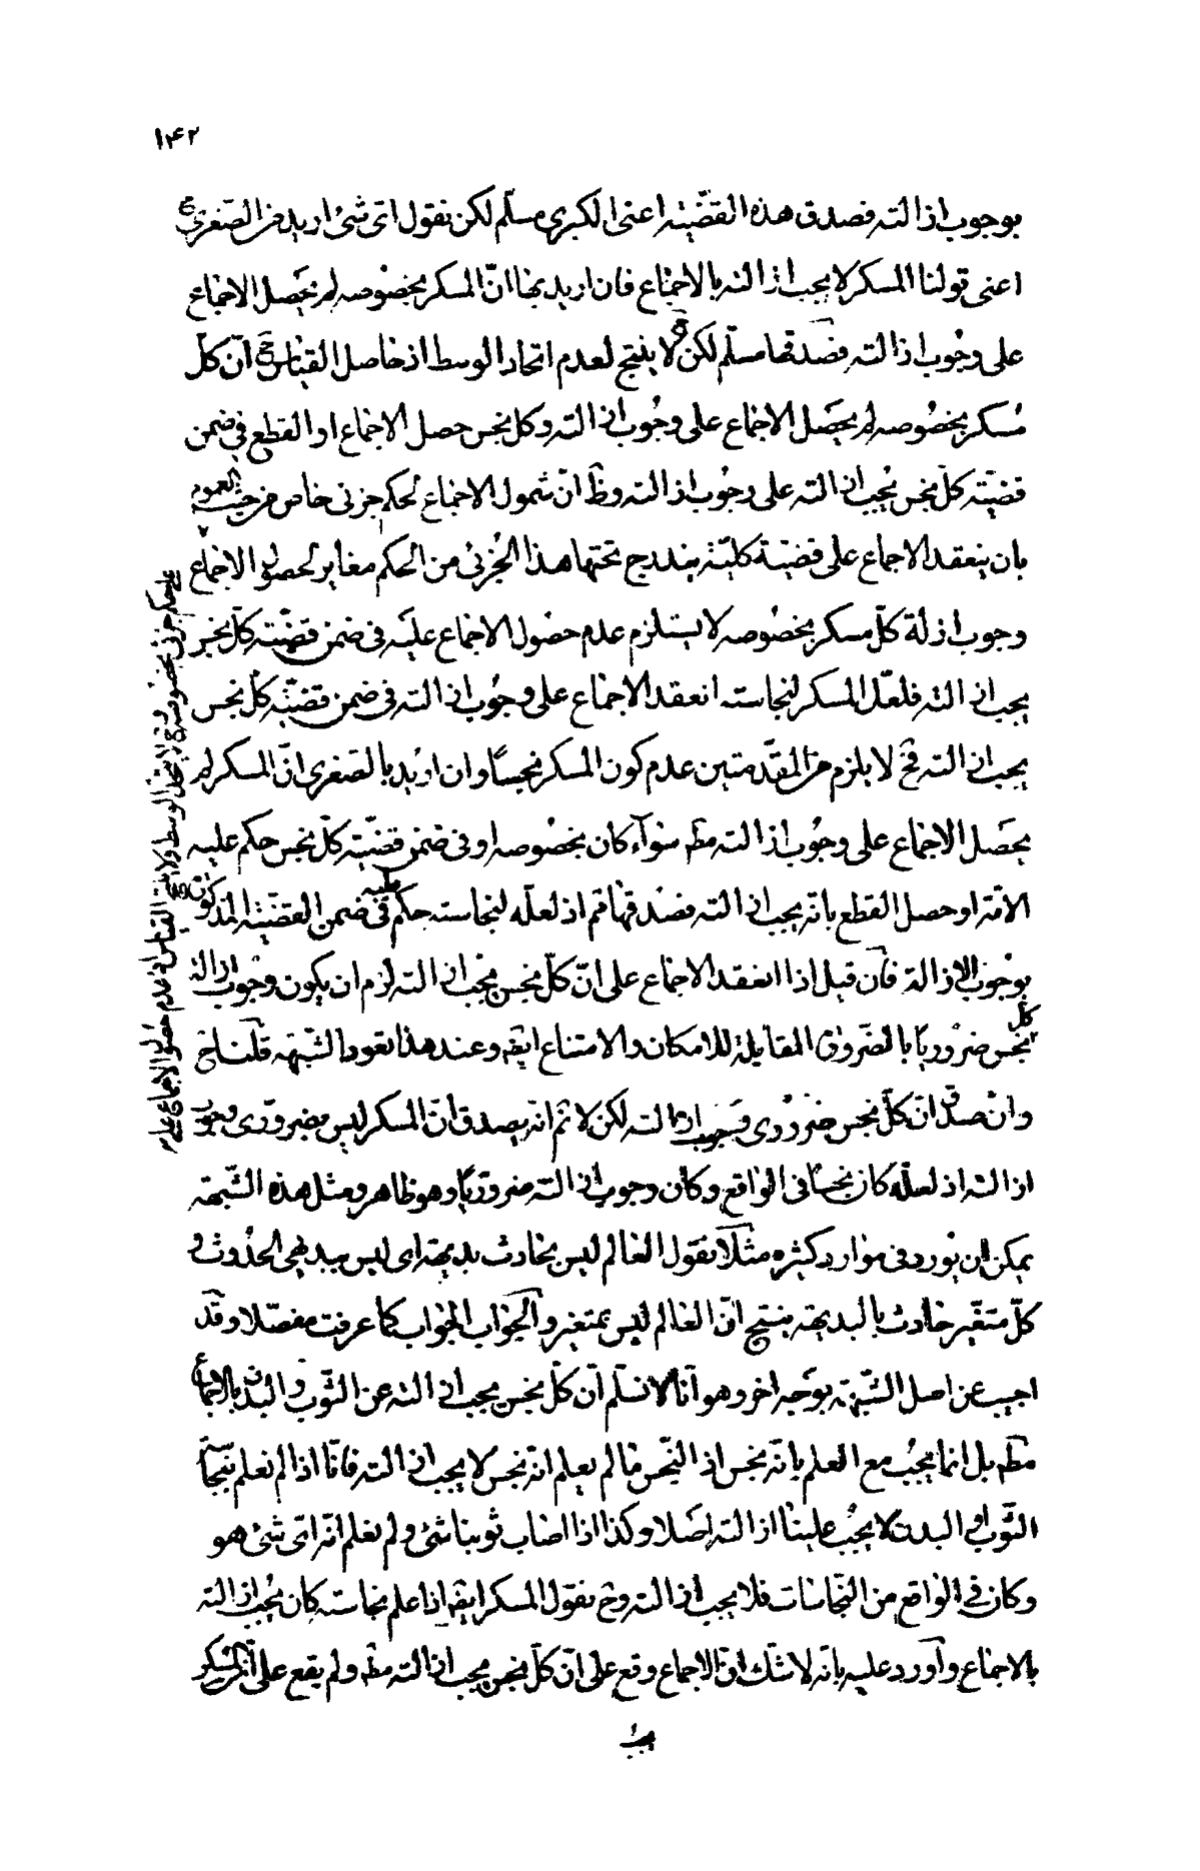 ١۴٢
بوجوب ازالته فصدق هذه القضيّة اعنى الكبرى مسلّم لكن نقول اىّ شئ اريد من الصّغرى
اعنى قولنا المسكر لا يجب ازالته بالاجماع فان اريد بها انّ المسكر بخصُوصه لم يحصَل الاجماع
على وجُوب ازالته فصَدقها مسلّم لكن لا ينتج لعدم اتحاد الوسط اذ حاصل القياس ح انّ كلّ
مُسكر بخصُوصه لم يحصَل الاجماع على وجُوب ازالته وكل نجس حصل الاجماع او القطع فى ضمن
قضيّته كلّ نجس يُجب ازالته على وجُوب ازالته وظَ انّ شمول الاجماع لحكم جزئى خاص من حيث العموم
بان ينعقد الاجماع على قضيّة كليّة يندرج تحتها هذا الجُزئى من الحكم مغاير لحصول الاجماع
وجوب ازلة كلّ مسكر بخصُوصه لا يستلزم عدم حصُول الاجماع عليَه فى ضمن قضيّته كلّ نجس
يجب ازالته فلعّل المسكر لنجاسته انعقد الاجماع على وجُوب ازالته فى ضمن قضيّة كلّ نجس
يجب ازالته فحَ لا يلزم من المقدّمتين عدم كون المسكر نجسًا وان اريُد بالصّغرى انّ المسكر لم
يحصَل الاجماع على وجُوب ازالته مطَ سَوآء كان بخصُوصه او فى ضمن قضيّته كلّ نجس حكم عليه
الامّة او حصل القطع بانّه يجب ازالته فصَدقها ثم اذ لعلّه لنجاسته حكم عليه فى ضمن القضيّة المذكورة
بوجُوب الازالة فآن قيل اذا انعقد الاجماع على انّ كلّ نجس يجب ازالته لزم ان يكون وجُوب ازالة
كل نجس ضرُوريًّا بالضّرورة المقابلة للامكان والامتناع ايضَ وعند هذا تعود الشّبهة قلنا ح
وان صدق انّ كلّ نجس ضرُورى وجوب ازالته لكن لا ثمّ انّه يصدق انّ المسكر ليس بضرورّى وجوب
ازالته اذ لعلّه كان نجسًا فى الواقع وكان وجوب ازالته ضروريًّا وهو ظاهر ومثل هذه الشّبهة
يمكن ان يُورد فى موارد كثيره مثلًا نقول العالم ليس بحادث بديهة اى ليس ببديهى الحدُوث و
كلّ متغيّر حادث بالبديهة ينتج انّ العالم ليس بمتغير والجواب الجواب كما عرفت مفصّلا وقَد
اجيب عن اصل الشّبهة بوَجه اخر وهو انّا لا نسلّم انّ كلّ نجس يجب ازالته عن الثّوب والبدن بالاجماع
مطَ بل انما يجُب مع العلم بانّه نجس اذ النّجس ما لم يعلم انّه نجس لا يجب ازالته فانّا اذا لم نعلم نجاسة
الثّوب او البدن لا يجُب علينا ازالته اصَلا وكذا اذا اصاب ثوبنا شئ ولم نعلم انّه اىّ شئ هو
وكان فى الواقع من النّجاسات فلا يجب ازالته وحَ نقول المسكر ايضَ اذا علم نجاسته كان يجُب ازالته
بالاجماع وآورد عليه بانّه لا شكّ انّ الاجماع وقع على انّ كلّ نجس يجب ازالته مطَ ولم يقع على انّ المسكر
يجب
على حكم جزئى بخصُوصه و ح لا يتحد الوسط ولا ينتج القياس اذ عدم حصُول الاجماع على